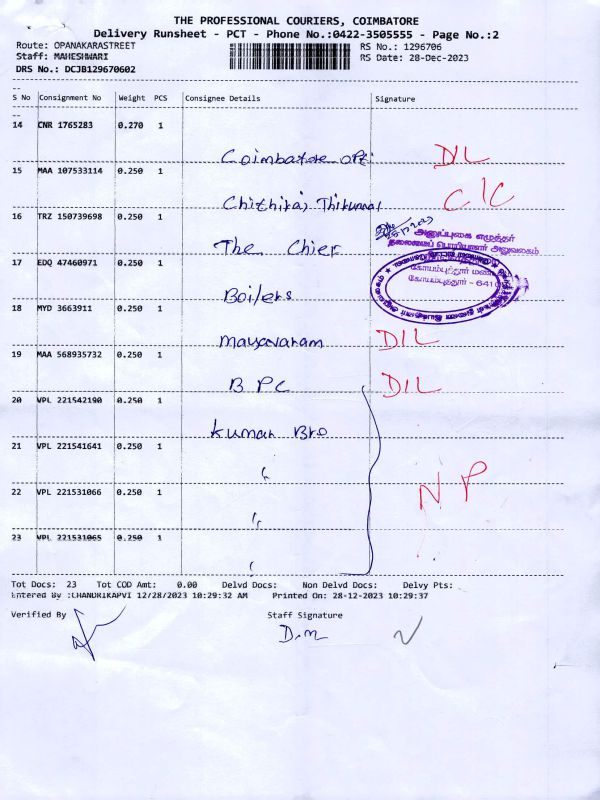 THE PROFESSIONAL COURIERS, COIMBATORE
Delivery Runsheet - PCT - Phone No.:0422-3505555 - Page No.:2
Route: OPANAKARASTREET RS No.: 1296706
Staff: MAHESHWARI RS Date: 28-Dec-2023
DRS No.: DCJB129670602
S No Consignment No Weight PCS Consignee Details Signature
14 CNR 1765283 0.270 1
Coimbatore DIL
15 MAA 107533114 0.250 1
Chithirai C/C
16 TRZ 150739698 0.250 1
அனுப்புகை எழுத்தர்
தலைமைப் பொறியாளர் அலுவலகம்
The Chief
17 EDQ 47460971 0.250 1
கோயம்புத்தூர் - 641
Boilers
18 MYD 3663911 0.250 1
mayavaram DIL
19 MAA 568935732 0.250 1
BPC DIL
20 VPL 221542190 0.250 1
Kumar Bro
21 VPL 221541641 0.250 1
"
NP
22 VPL 221531066 0.250 1
"
23 VPL 221531065 0.250 1
"
Tot Docs: 23 Tot COD Amt: 0.00 Delvd Docs: Non Delvd Docs: Delvy Pts:
Entered By :CHANDRIKAPVI 12/28/2023 10:29:32 AM Printed On: 28-12-2023 10:29:37
Verified By Staff Signature
D.m